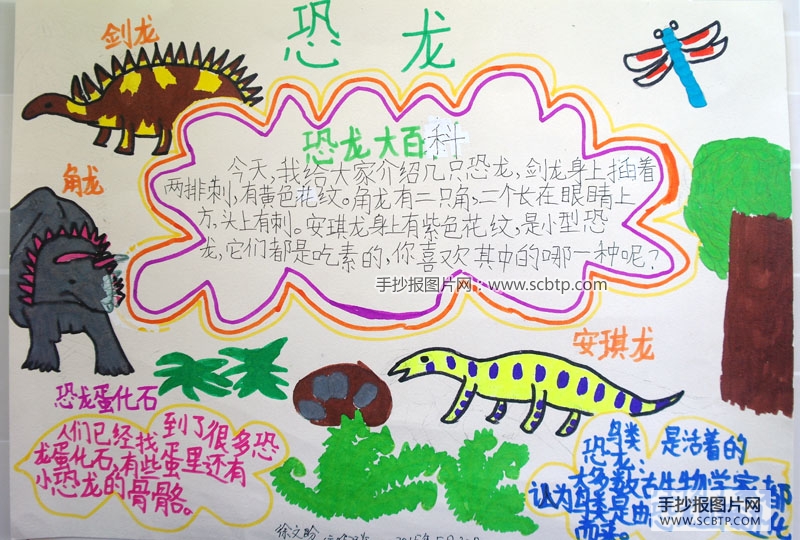 恐 龙
剑龙
恐龙大百科
今天,我给大家介绍几只恐龙,剑龙身上插着
两排刺,有黄色花纹。角龙有二只角,二个长在眼睛上
方,头上有刺。安琪龙身上有紫色花纹,是小型恐
龙,它们都是吃素的,你喜欢其中的哪一种呢?
手抄报图片网:www.scbtp.com
角龙
安琪龙
恐龙蛋化石
人们已经找到了很多恐
龙蛋化石,有些蛋里还有
小恐龙的骨骼。
鸟类 是活着的
恐龙:
大多数古生物学家都
认为鸟类是由
化
而来。
手抄报图片网
WWW.SCBTP.COM